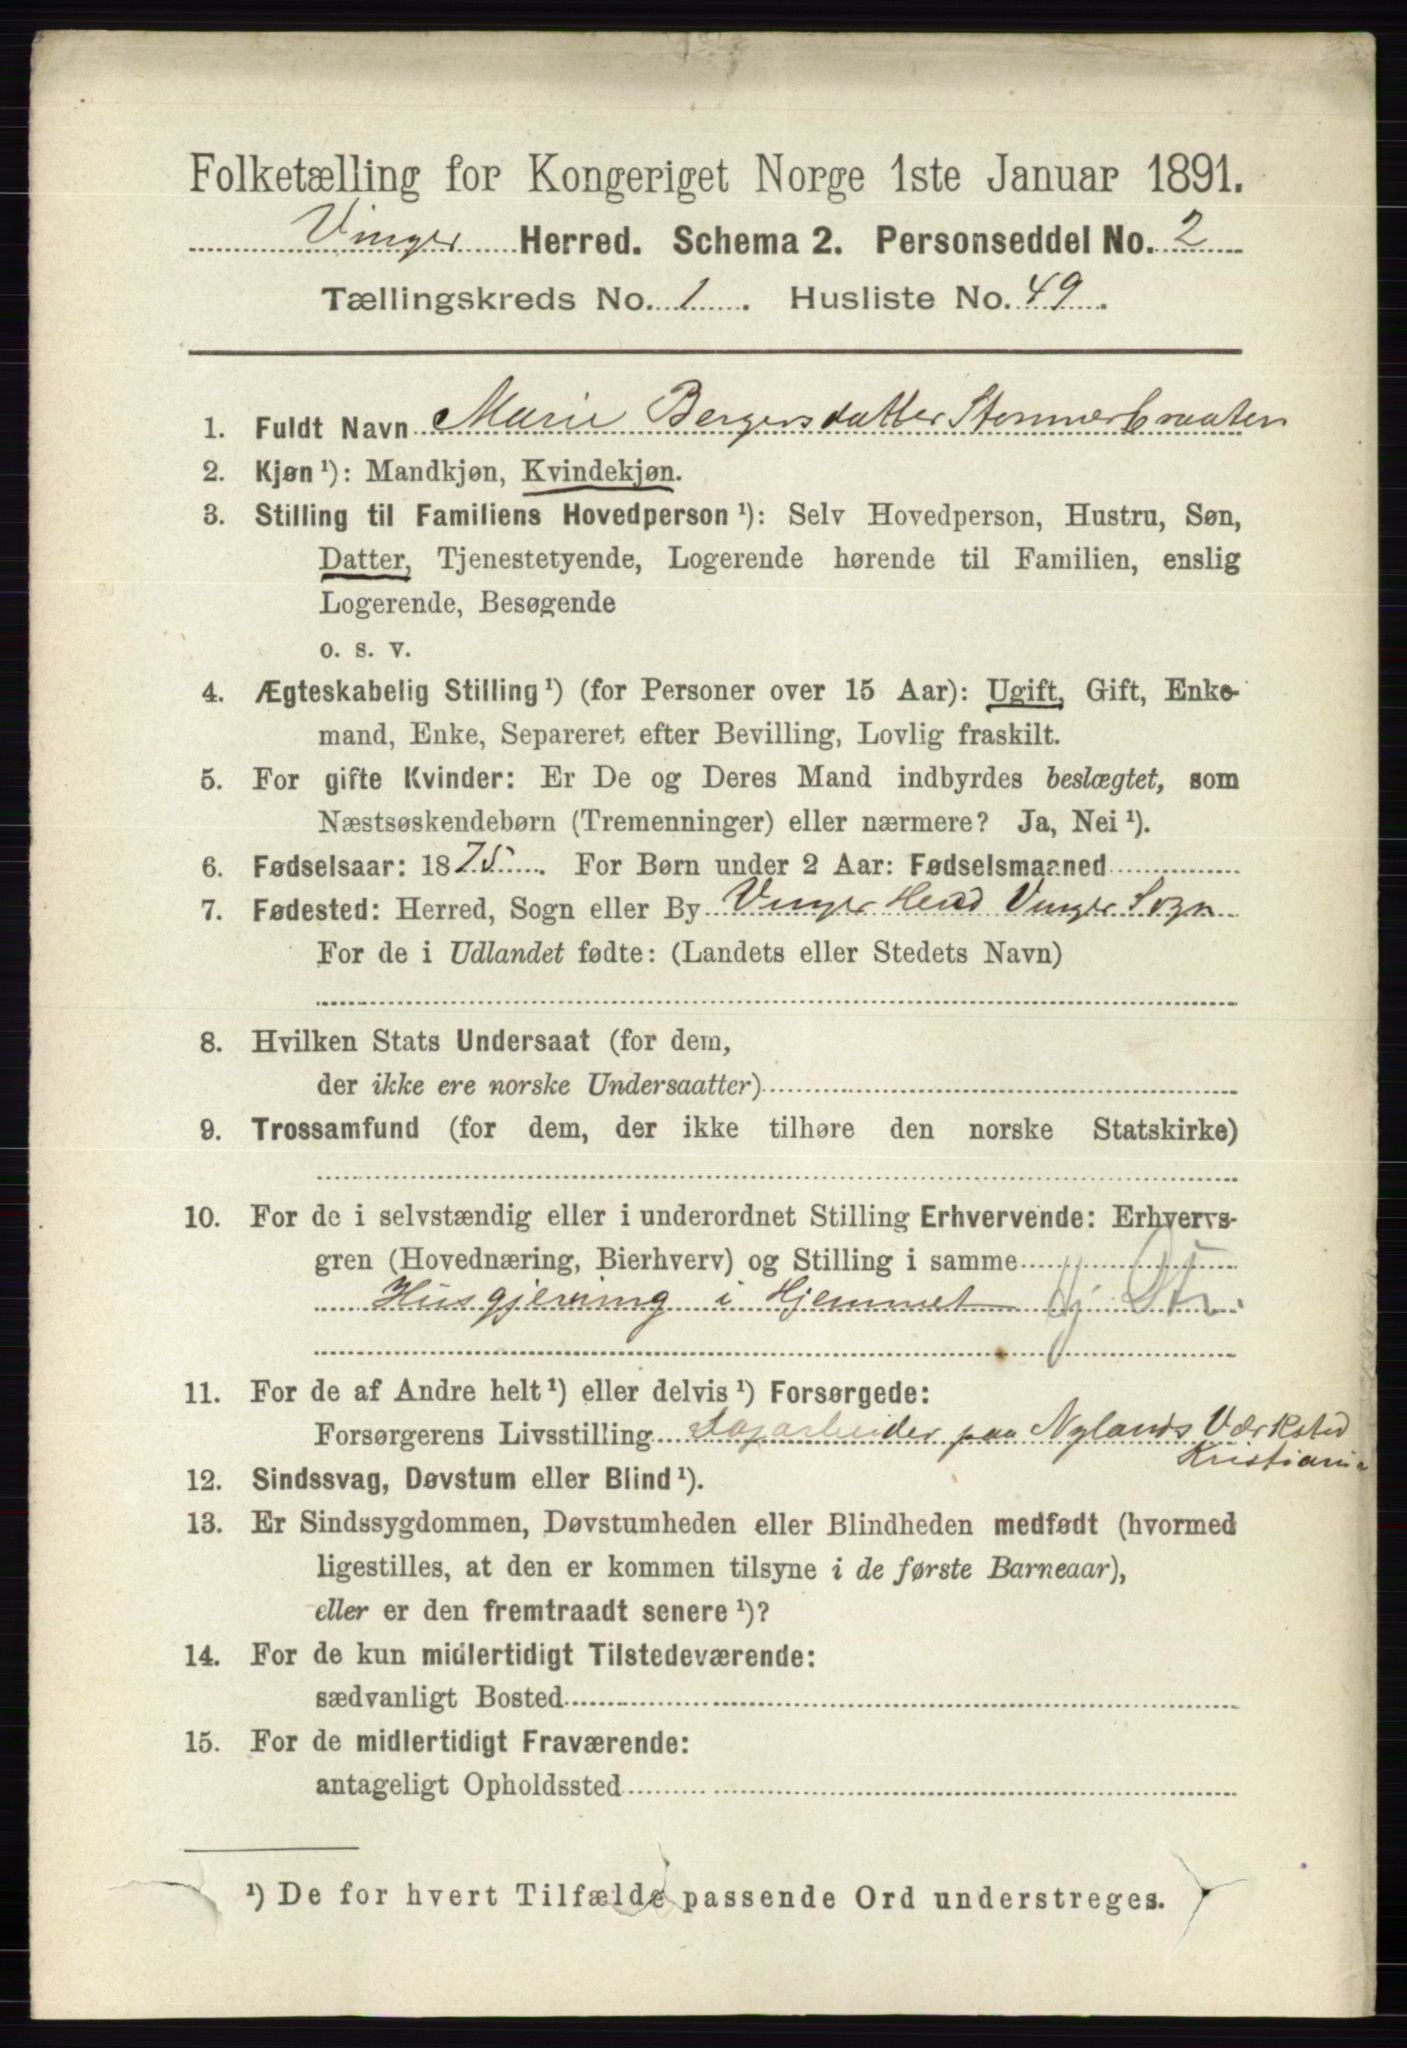 Folketælling for Kongeriget Norge 1ste Januar 1891.
Vinger Herred. Schema 2. Personseddel No. 2
Tællingskreds No. 1. Husliste No. 49.
1. Fuldt Navn Marie Bergersdatter Stommerbraaten
2. Kjøn ¹): Mandkjøn, Kvindekjøn.
3. Stilling til Familiens Hovedperson ¹): Selv Hovedperson, Hustru, Søn,
Datter, Tjenestetyende, Logerende hørende til Familien, enslig
Logerende, Besøgende
o. s. v.
4. Ægteskabelig Stilling ¹) (for Personer over 15 Aar): Ugift, Gift, Enke-
mand, Enke, Separeret efter Bevilling, Lovlig fraskilt.
5. For gifte Kvinder: Er De og Deres Mand indbyrdes beslægtet, som
Næstsøskendebørn (Tremenninger) eller nærmere? Ja, Nei ¹).
6. Fødselsaar: 1875. For Børn under 2 Aar: Fødselsmaaned
7. Fødested: Herred, Sogn eller By Vinger Herd Vinger Sogn
For de i Udlandet fødte: (Landets eller Stedets Navn)
8. Hvilken Stats Undersaat (for dem,
der ikke ere norske Undersaatter)
9. Trossamfund (for dem, der ikke tilhøre den norske Statskirke)
10. For de i selvstændig eller i underordnet Stilling Erhvervende: Erhvervs-
gren (Hovednæring, Bierhverv) og Stilling i samme
Husgjerning i Hjemmet Hj St.
11. For de af Andre helt ¹) eller delvis ¹) Forsørgede:
Forsørgerens Livsstilling paa Nylands Værksted
Kristiania
12. Sindssvag, Døvstum eller Blind ¹).
13. Er Sindssygdommen, Døvstumheden eller Blindheden medfødt (hvormed
ligestilles, at den er kommen tilsyne i de første Barneaar),
eller er den fremtraadt senere ¹)?
14. For de kun midlertidigt Tilstedeværende:
sædvanligt Bosted
15. For de midlertidigt Fraværende:
antageligt Opholdssted
¹) De for hvert Tilfælde passende Ord understreges.